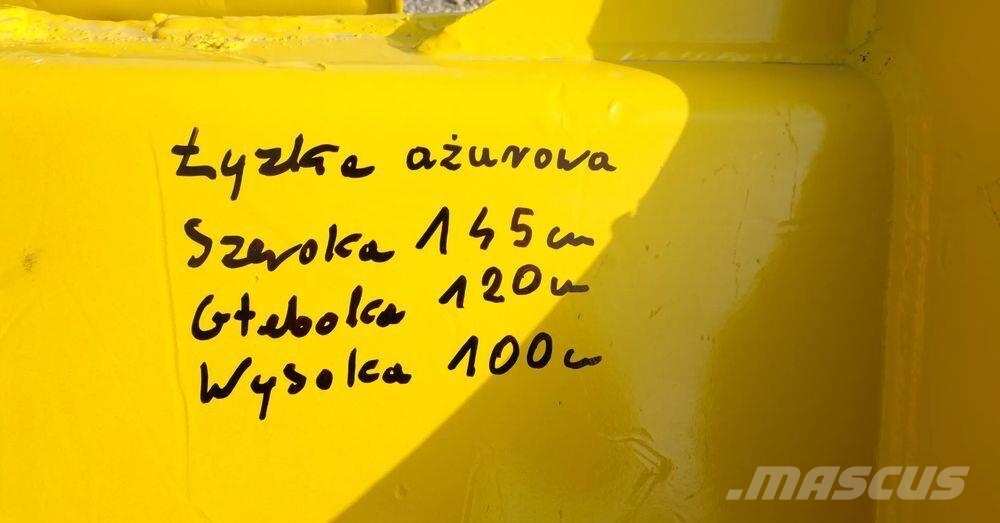 Łyżka ażurowa
Szeroka 145 cm
Głęboka 120 cm
Wysoka 100 cm
.MASCUS